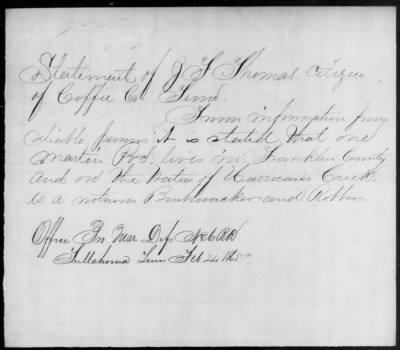 Statement of J S Thomas Citizen
of Coffie Co Tenn.
From information from
reliable persons it is stated that one
Martin lives in Franklin County
and on the Waters of Hurricain Creek.
is a notorious Bushwacker and Robber
Office Pro Mar
Tullahoma Tenn Feb 24 1865